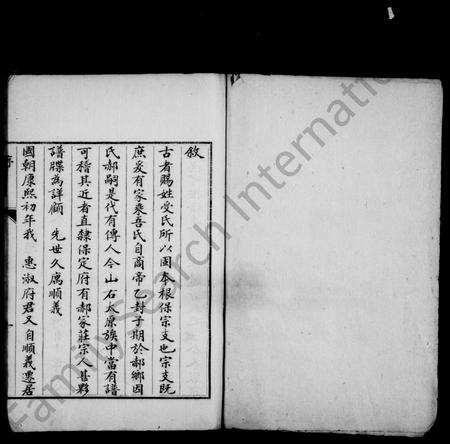 敘
古者賜姓受氏所以固本根保宗支也宗支既
庶爰有家乘吾氏自商帝乙封子期於郝鄉因
氏郝嗣是代有傳人今山右太原族中當有譜
可稽其近者直隸保定府有郝家莊宗人甚夥
譜牒為詳顧 先世久屬順義
國朝康熙初年我 惠淑府君又自順義遷居
序
FamilySearch International